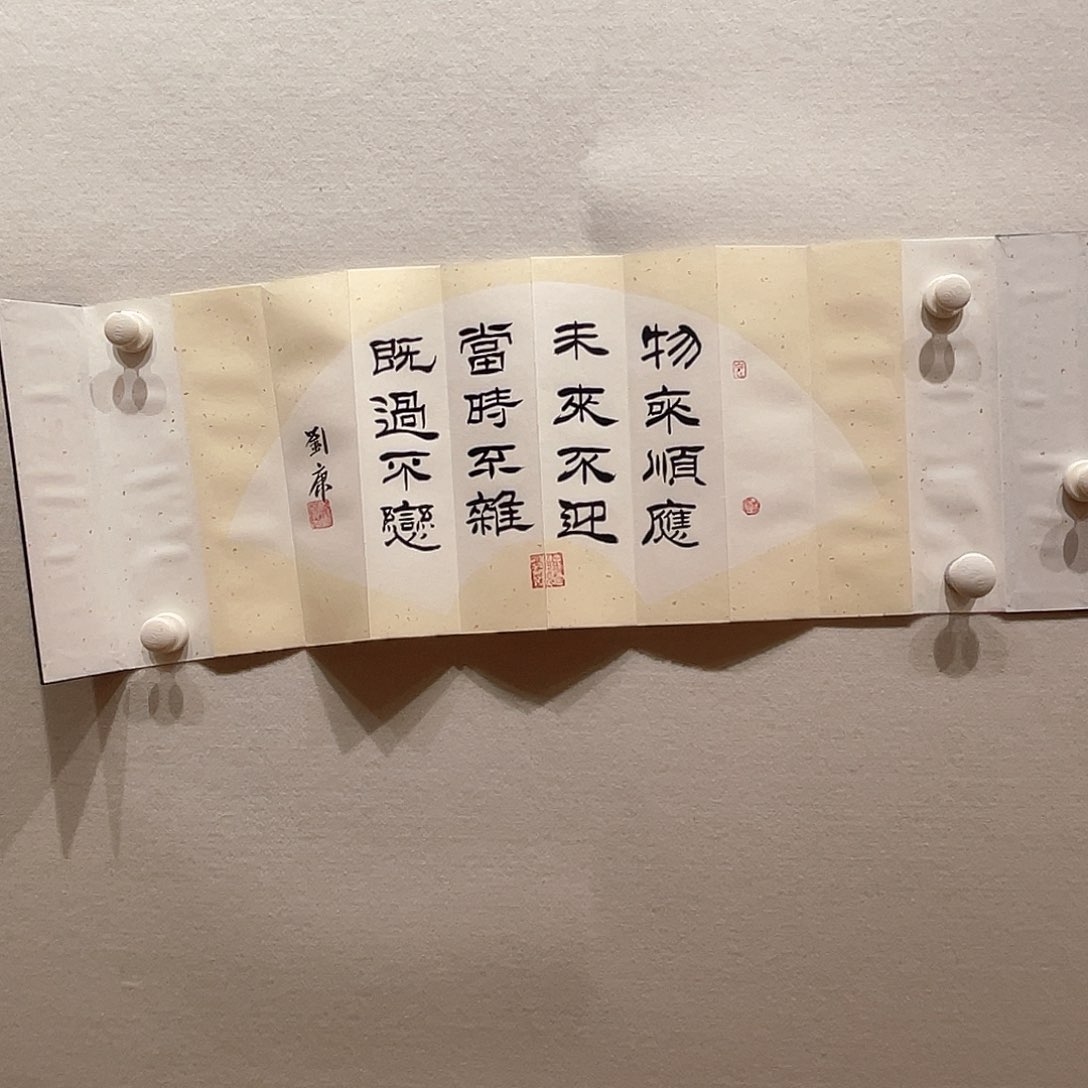 物來順應
未來不迎
當時不雜
既過不戀
劉康